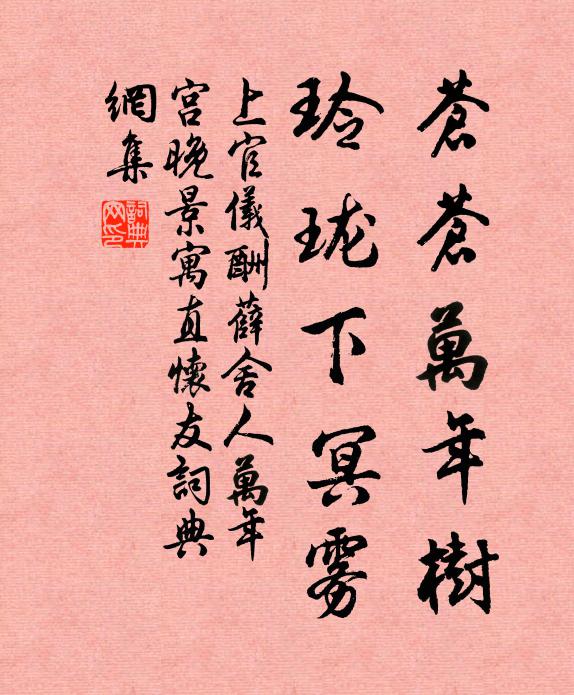 蒼蒼萬年樹
玲珑下冥雾
上官儀酬薛舍人萬年
宫晚景寓直懷友詞典
網集
詞典網印